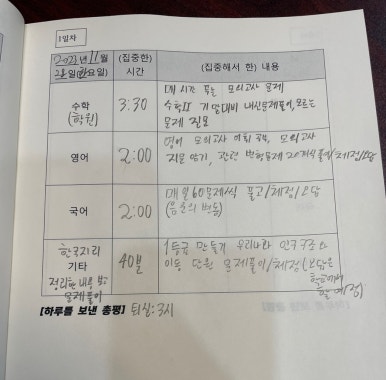 1일차
2023년 11월
28일(화요일)
(집중한)
시간
(집중해서 한) 내용
수학
(학원)
3:30
매 시간 푸는 모의고사 문제
수학II 기말대비 내신문제풀이, 모르는
문제 질문
영어
2:00
영어 모의고사 어휘 공부, 모의고사
지문 암기, 관련 변형문제 20개씩 풀이/채점/오답
국어
2:00
매일 60문제씩 풀고/채점/오답
(음운의 변동)
한국지리
기타
정리한 내용
문제풀이
40분
1등급 만들기 우리나라 인구구조와
이동 단원 문제풀이/채점(오답은
할 예정)
[하루를 보낸 총평] 퇴실:3시